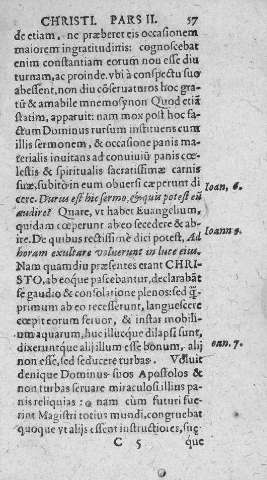 CHRISTI. PARS II. 57
de etiam, ne præberet eis occasionem
maiorem ingratitudinis: cognoscebat
enim constantiam eorum non esse diu
turnam, ac proinde, vbi à conspectu suo
abessent, non diu cõseruaturos hoc gra-
tũ & amabile mnemosynon Quod etiã
statim, apparuit: nam mox post hoc fa-
ctum Dominus rursum instituens cum
illis sermonem, & occasione panis ma-
terialis inuitans ad conuiuiũ panis cœ-
lestis & spiritualis sacratissimæ carnis
suæ, subitò in eum obuersi cœperunt di
cere. Durus est hic sermo, & quis potest eũ
audire? Quare, vt habet Euangelium,
quidam cœperunt ab eo secedere & ab-
ire. De quibus rectissimè dici potest, Ad
horam exultare voluerunt in luce eius.
Nam quamdiu præsentes erant CHRI-
STO, ab eoque pascebantur, declarabãt
se gaudio & consolatione plenos: sed q̃-
primum ab eo recesserunt, languescere
cœpit eorum feruor, & instar mobili-
um aquarum, huc illucque dilapsi sunt,
dixeruntque alij illum esse bonum, alij
non esse, sed seducere turbas. Voluit
denique Dominus suos Apostolos &
non turbas seruare miraculosi illius pa-
nis reliquias: nam cùm futuri fue-
rint Magistri totius mundi, congruebat
quoque vt alijs essent instructiores, suę-
C 5 que
Ioan, 6.
Ioann 5.
oan, 7.